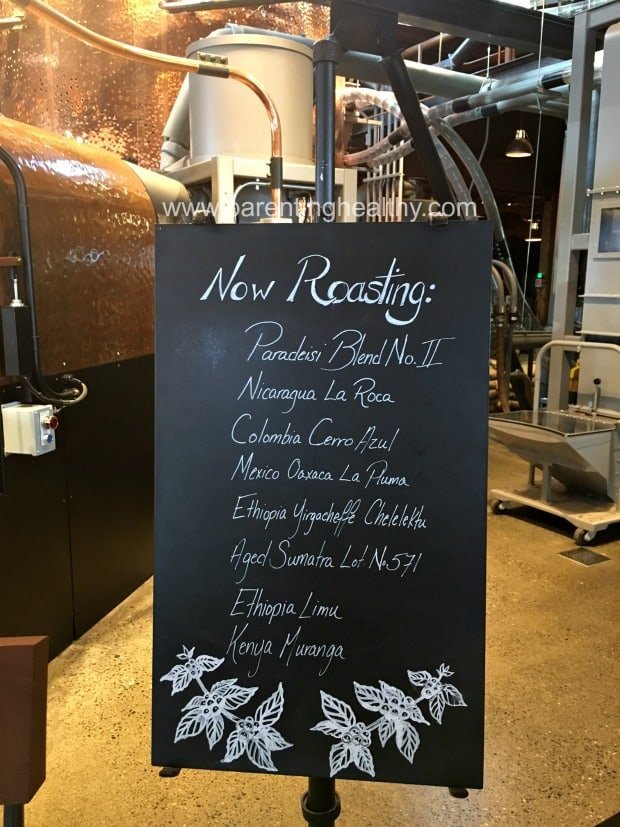 www.parentinghealthy.com
Now Roasting:
Paradeisi Blend No. II
Nicaragua La Roca
Colombia Cerro Azul
Mexico Oaxaca La Pluma
Ethiopia Yirgacheffe Chelelektu
Aged Sumatra Lot No. 571
Ethiopia Limu
Kenya Muranga